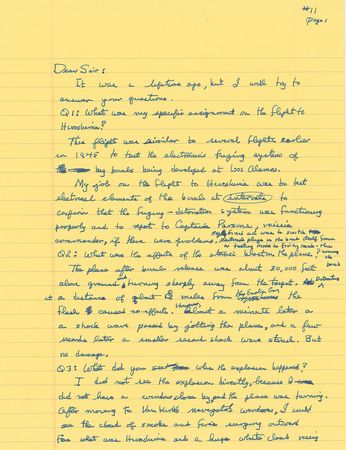 #11
page 1
Dear Sir:
It was a lifetime ago, but I will try to
answer your questions.
Q1: What was my specific assignment on the flight to
Hiroshima?
This flight was similar to several flights earlier
in 1945 to test the electronic fuzing system of
by bombs being developed at Los Alamos.
My job on the flight to Hiroshima was to test
electrical elements of the bomb at intervals to
confirm that the fuzing-detonation system was functioning
properly and to report to Captain Parsons, mission
commander, if there were problems. My final act was to switch
electrical plugs in the bomb itself from
Q2: What were the effects of the attack blast on the plane?
The plane after bomb release was about 30,000 feet
above ground & turning sharply away from the target.
at a distance of about 12 miles from the
flash caused no effects. About a minute later a
a shock wave passed by jolting the plane, and a few
seconds later a smaller second shock wave struck. But
no damage.
Q3: What did you see when the explosion happened?
I did not see the explosion directly, because I
did not have a window close by and the plane was turning.
After moving to Van Kirk's navigator window, I could
see the cloud of smoke and fire surging outward
from what was Hiroshima and a huge white cloud rising